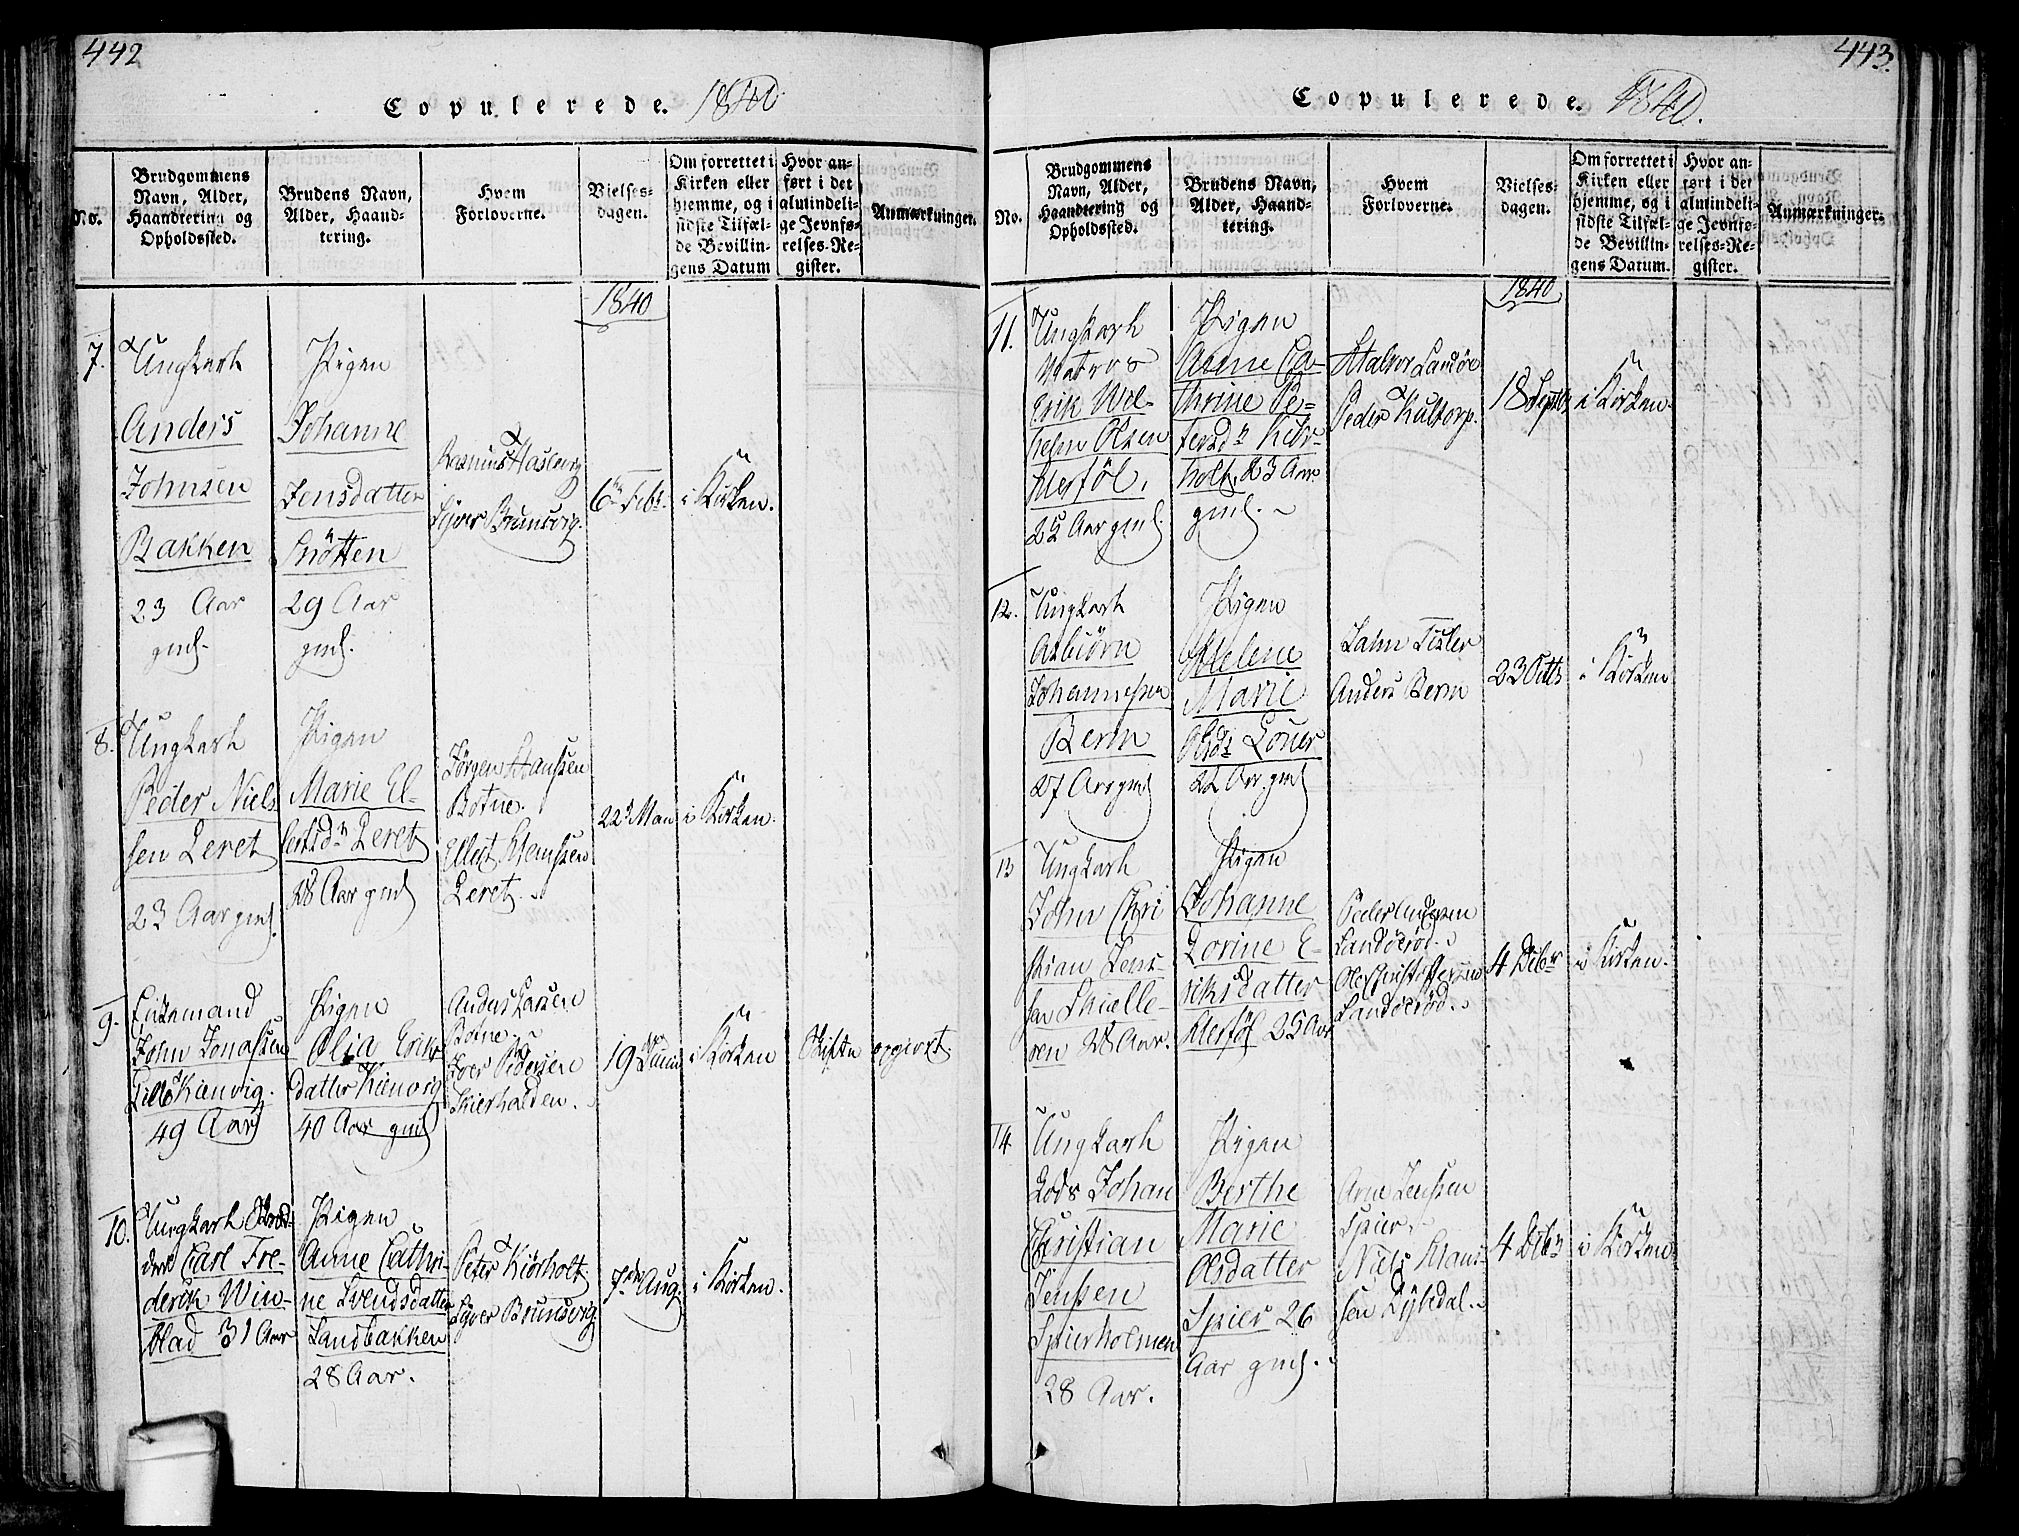 442
Copulerede. 1840
No.
Brudgommens
Navn, Alder,
Haandtering og
Opholdssted.
Brudens Navn,
Alder, Haand-
tering.
Hvem
Forloverne.
Vielses-
dagen.
Om forrettet i
Kirken eller
hjemme, og i
sidste Tilfæl-
de Bevillin-
gens Datum
Hvor an-
ført i det
almindeli-
ge Jevnfø-
relses-Re-
gister.
Anmærkninger.
1840
7.
Ungkarl
Anders
Johnsen
Bakken
23 Aar
gml.
Pigen
Johanne
Jensdatter
29 Aar
gml.
Rasmus Hasleng
Syver Brunsvig.
6te Febr.
i Kirken.
8.
Ungkarl
Peder Niel-
sen Leret
23 Aar gml.
Pigen
Marie El-
lefsdr Leret
28 Aar gml
Jørgen Hanssen
Botne
Ellert Klaussen
Leret
22d Mai
i Kirken.
9.
Enkemand
John Jonassen
Lille Kienvig.
49 Aar
Pigen
Olia Eriks
datter Kienvig
40 Aar gml
Anders Larsen
Botne
Iver Pedersen
Skierhalden.
19 Juni
i Kirken
Skifte opgiort.
10.
Ungkarl
Carl Fre-
derik Win-
blad 31 Aar
Pigen
Anne Cathri-
ne Svendsdatter
Sandbakken
28 Aar.
Peter Kiørholt
Syver Brunsvig
7de Aug.
i Kirken.
443.
Copulerede. 1840.
No.
Brudgommens
Navn, Alder,
Haandtering og
Opholdssted.
Brudens Navn,
Alder, Haand-
tering.
Hvem
Forloverne.
Vielses-
dagen.
Om forrettet i
Kirken eller
hjemme, og i
sidste Tilfæl-
de Bevillin-
gens Datum.
Hvor an-
ført i det
almindeli-
ge Jevnfø-
relses-Re-
gister.
Anmærkninger.
1840
11.
Ungkarl
Matros
Erik Wil-
helm Olsen
Herføl.
25 Aar gml.
Pigen
Anne Ca-
thrine Pe-
tersdr Kiør-
holt, 23 Aar
gml.
Halvor Sandøe
Peder Kultorp.
18 Septbr
i Kirken.
12.
Ungkarl
Asbiørn
Johannessen
Berm
27 Aar gml
Pigen
Helene
Marie
Olsdr Løuer
22 Aar. gml
Lahn Tisler
Anders Berm
23 Octbr
i Kirken
13
Ungkarl
John Chri
stian Jens-
sen Thielle-
ren 28 Aar.
Pigen
Johanne
Lorine E-
riksdatter
Herføl 25 Aar
Peder Andersen
Sandøerød.
Ole Christoffersen
Sandøerød.
4 Dcbr
i Kirken.
14
Ungkarl
Lods Johan
Christian
Jenssen
Spierholmen
28 Aar.
Pigen
Berthe
Marie
Olsdatter
Spier 26
Aar gml.
Arne Jenssen
Spier
Niels Klaus-
sen Dybedal.
4 Dcbr
i Kirken